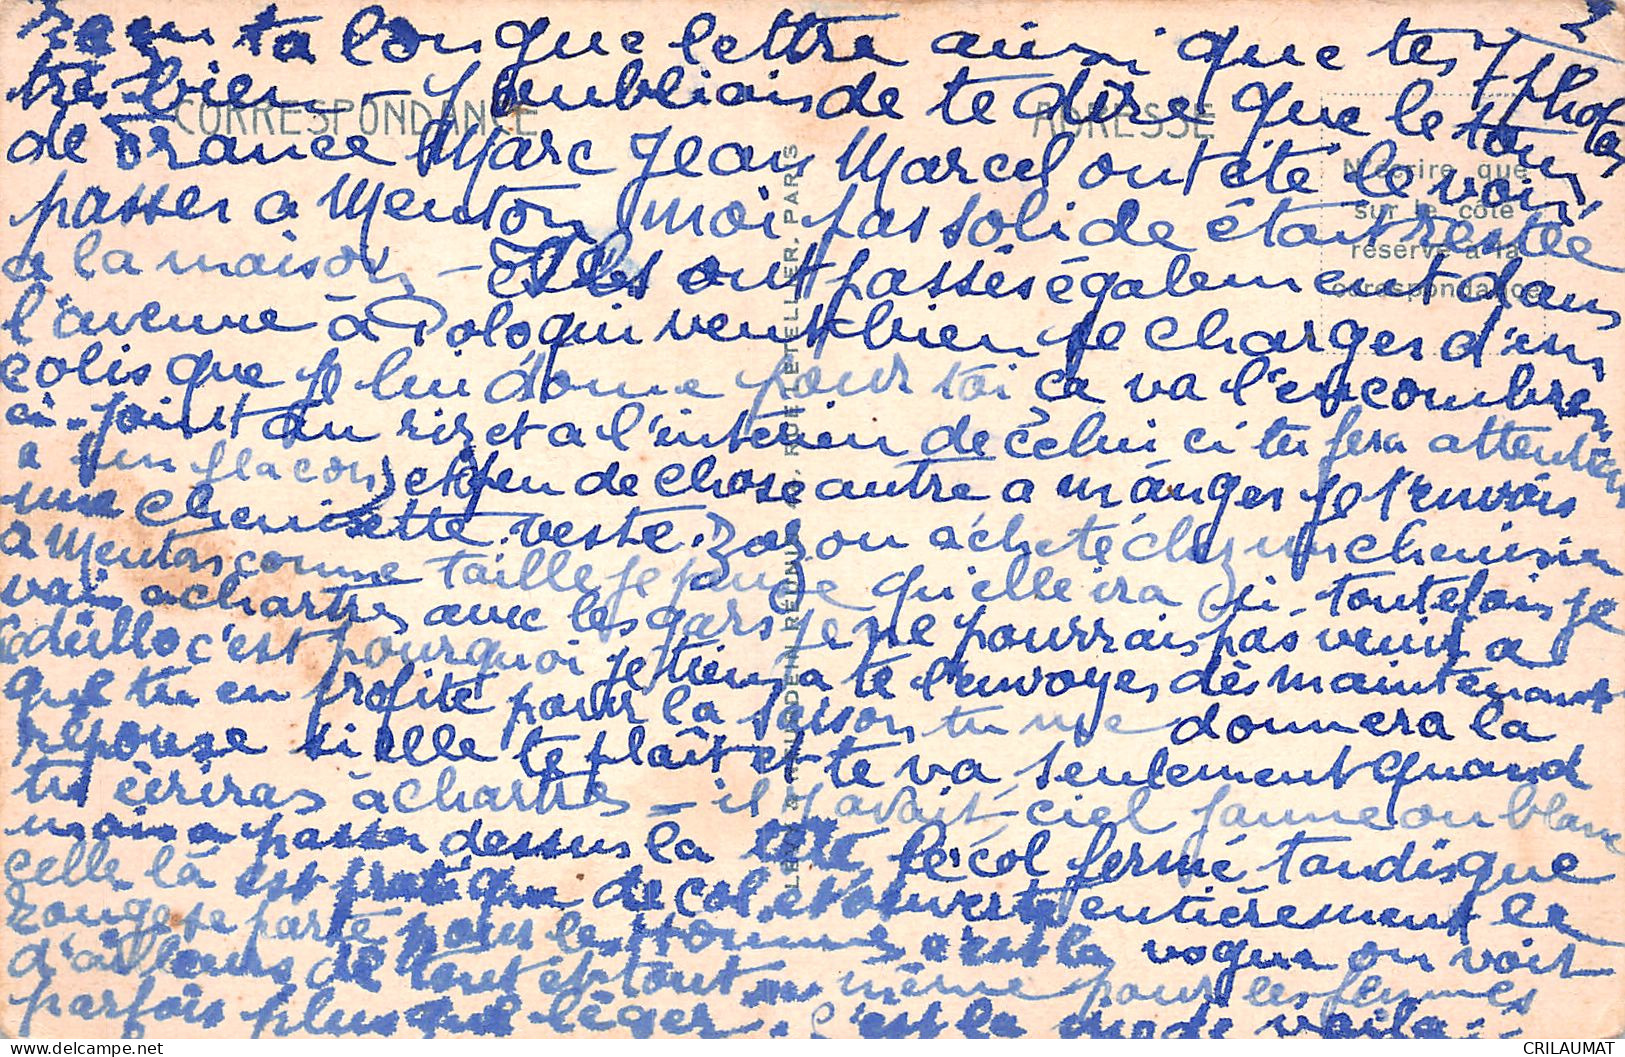 2
reçu ta longue lettre ainsi que tes photos
très bien - J'oubliais de te dire que le tour
de France Marc Jean Marcel ont été le voir
passer a Menton moi pas solide étant restée
a la maison - Elles ont passés également dans
l'avenue à Polo qui veut bien se charger d'un
colis que je lui donne pour toi ça va l'encombrer
ci-joint du riz et a l'interieur de celui ci tu fera attention
a un flacon et peu de chose autre a manger je t'envois
une chemisette veste. Zazou acheté chez un chemisier
a Menton comme taille je pense qu'elle ira ici. toutefois je
vais a chartres avec les gars je ne pourrais pas venir a
c'est pourquoi je tiens a te l'envoyer dès maintenant
que tu en profite pour la saison tu me donnera la
réponse si elle te plaît et te va seulement quand
tu ècriras à chartres - il y avait ciel jaune ou blanc
mais a passer dessus la tête le col fermé tandis que
celle là est pratique de col et ouverte entièrement le
rouge se porte pour les hommes c'est la vogue on voit
d'ailleurs de tout et tout même pour les femmes
parfois plus que lèger. c'est la mode voila..
CORRESPONDANCE
ADRESSE
N'écrire que
sur le côté
réservé à la
correspondance
RUE LETELLIER, PARIS
CRILAUMAT